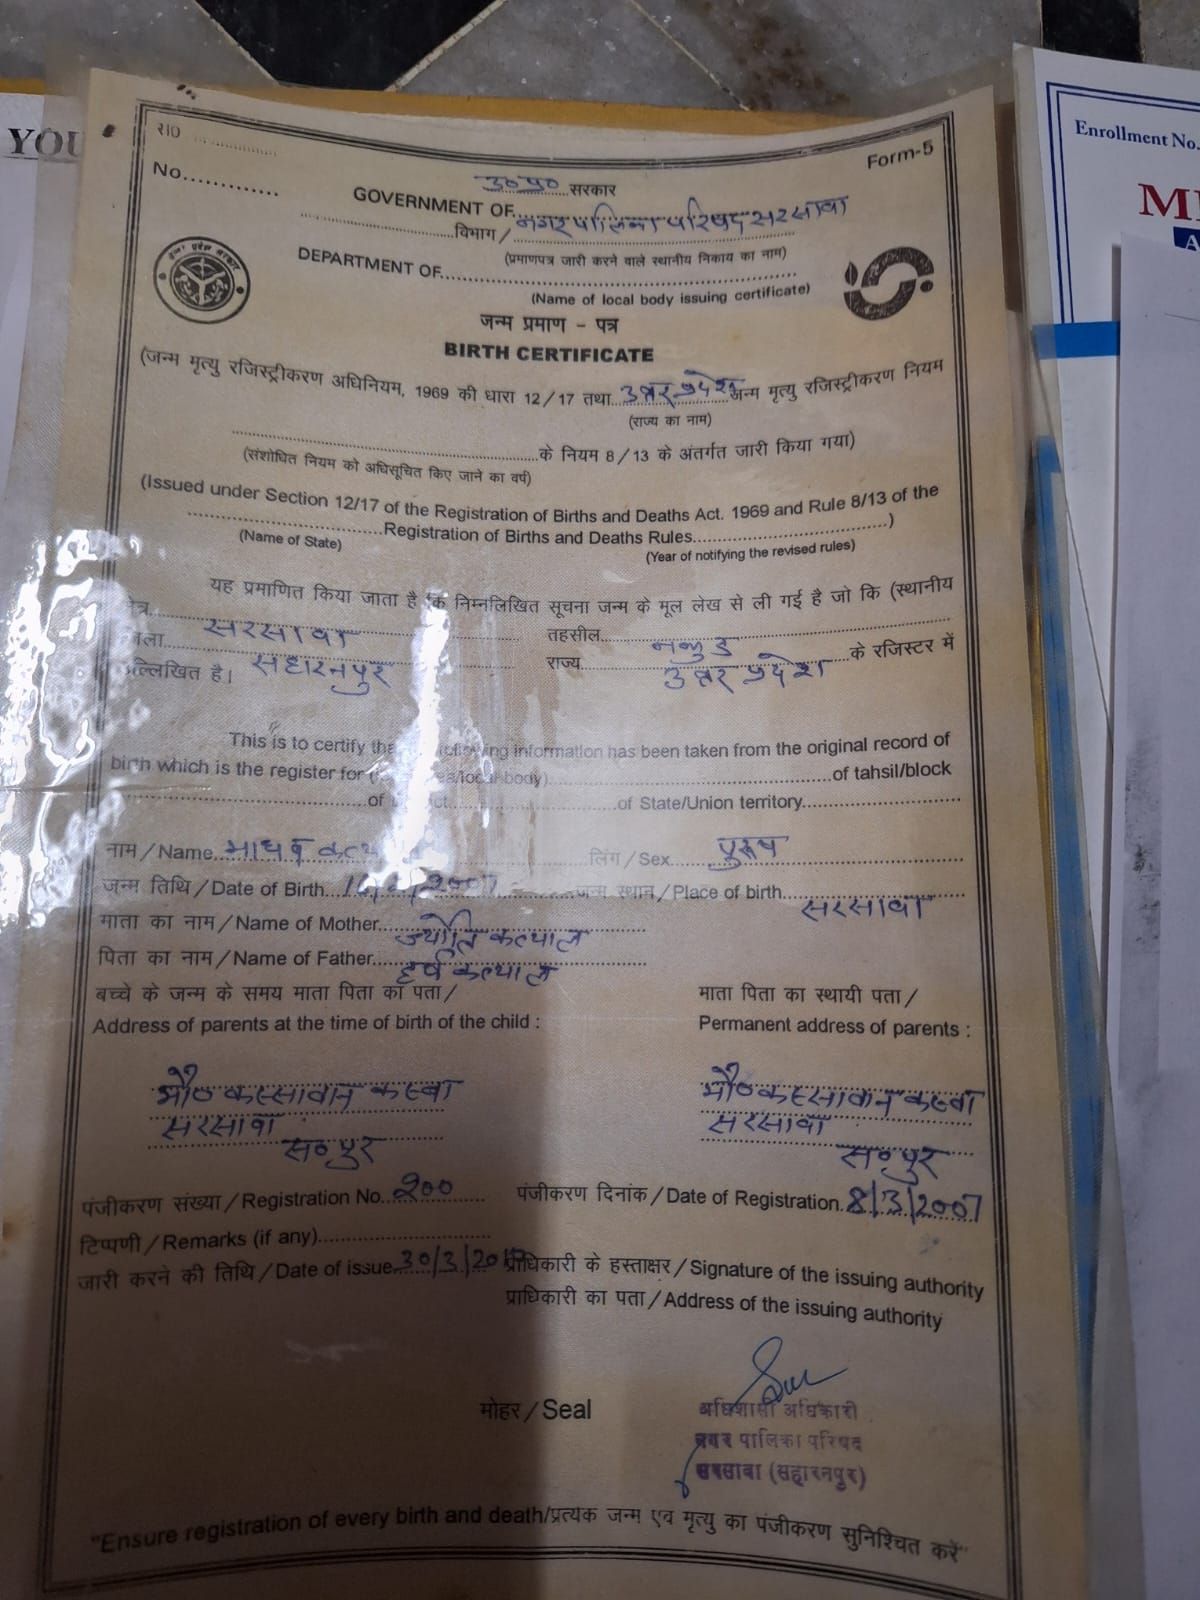 YOU
Enrollment No.
210
Form-5
No.............
उ०प्र० सरकार
GOVERNMENT OF
विभाग / नगर पालिका परिषद सरसावा
(प्रमाणपत्र जारी करने वाले स्थानीय निकाय का नाम)
DEPARTMENT OF
(Name of local body issuing certificate)
जन्म प्रमाण - पत्र
BIRTH CERTIFICATE
(जन्म मृत्यु रजिस्ट्रीकरण अधिनियम, 1969 की धारा 12/17 तथा उत्तर प्रदेश जन्म मृत्यु रजिस्ट्रीकरण नियम
(राज्य का नाम)
के नियम 8/13 के अंतर्गत जारी किया गया)
(संशोधित नियम को अधिसूचित किए जाने का वर्ष)
(Issued under Section 12/17 of the Registration of Births and Deaths Act. 1969 and Rule 8/13 of the
Registration of Births and Deaths Rules )
(Name of State) (Year of notifying the revised rules)
यह प्रमाणित किया जाता है कि निम्नलिखित सूचना जन्म के मूल लेख से ली गई है जो कि (स्थानीय
सरसावा तहसील नकुड
सहारनपुर राज्य उत्तर प्रदेश के रजिस्टर में
है।
This is to certify information has been taken from the original record of
birth which is the register for of tahsil/block
of of State/Union territory
नाम / Name माधव लिंग / Sex पुरूष
जन्म तिथि / Date of Birth 2007 जन्म स्थान / Place of birth सरसावा
माता का नाम / Name of Mother ज्योति कत्याल
पिता का नाम / Name of Father हर्ष कत्याल
बच्चे के जन्म के समय माता पिता का पता / माता पिता का स्थायी पता /
Address of parents at the time of birth of the child : Permanent address of parents :
मौ० कस्सावान कस्बा मौ० कस्सावान कस्बा
सरसावा सरसावा
स०पुर स०पुर
पंजीकरण संख्या / Registration No. 200 पंजीकरण दिनांक / Date of Registration. 8/3/2007
टिप्पणी / Remarks (if any)
जारी करने की तिथि / Date of issue 30/3/ प्राधिकारी के हस्ताक्षर / Signature of the issuing authority
प्राधिकारी का पता / Address of the issuing authority
मोहर / Seal
अधिशासी अधिकारी
नगर पालिका परिषद
सरसावा (सहारनपुर)
"Ensure registration of every birth and death/प्रत्येक जन्म एवं मृत्यु का पंजीकरण सुनिश्चित करें"